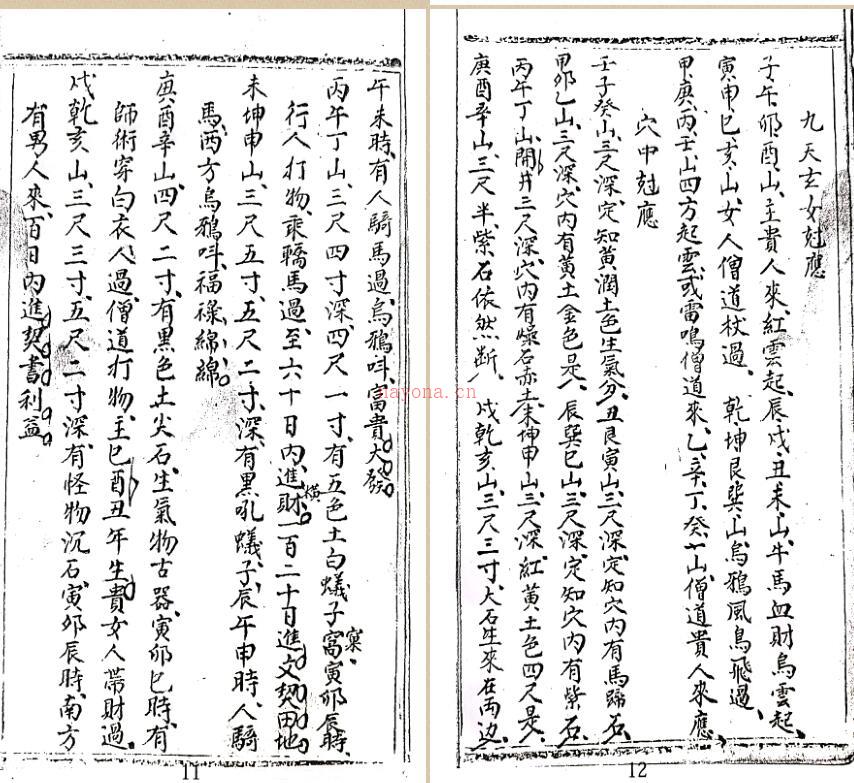 午未時、有人騎馬過、烏鴉叫、富貴大發
丙午丁山、三尺四寸深、四尺一寸、有五色土白蟻子窩寅卯辰時、
窠
行人打物、乘轎馬過、至六十日內、進財、一百二十日進文契田地
橫
未坤申山、三尺五寸、五尺二寸、深、有黑吼蟻、子、辰午申時、人騎
馬、西方烏鴉叫、福祿綿綿
庚酉辛山、四尺二寸、有黑色土尖石生氣物古器、寅卯巳時、有
師術穿白衣人過、僧道打物、主巳酉丑年生貴女人帶財過、
戌乾亥山、三尺三寸、五尺二寸深、有怪物沉石、寅卯辰時、南方
有男人來、百日內進契書利益
11
九天玄女尅應
子午卯酉山、主貴人來、紅雲起、辰戌丑未山、牛馬血財烏雲起、
寅申巳亥山、女人僧道杖過、乾坤艮巽山、烏鴉風鳥飛過、
甲庚丙壬山四方起雲或雷鳴僧道來、乙辛丁癸山僧道貴人來應、
穴中尅應
壬子癸山、三尺深、定知黃潤土色生氣分、丑艮寅山、三尺深、定知穴內有馬蹄石、
甲卯乙山、三尺深、穴內有黃土金色是、辰巽巳山、三尺深、定知穴內有紫石、
丙午丁山、開井三尺深、穴內有燥石赤土、未坤申山、三尺深、紅黃土色四尺是、
庚酉辛山、三尺半、紫石依然斷、戌乾亥山、三尺三寸、大石生來在兩边、
12
nayona.cn